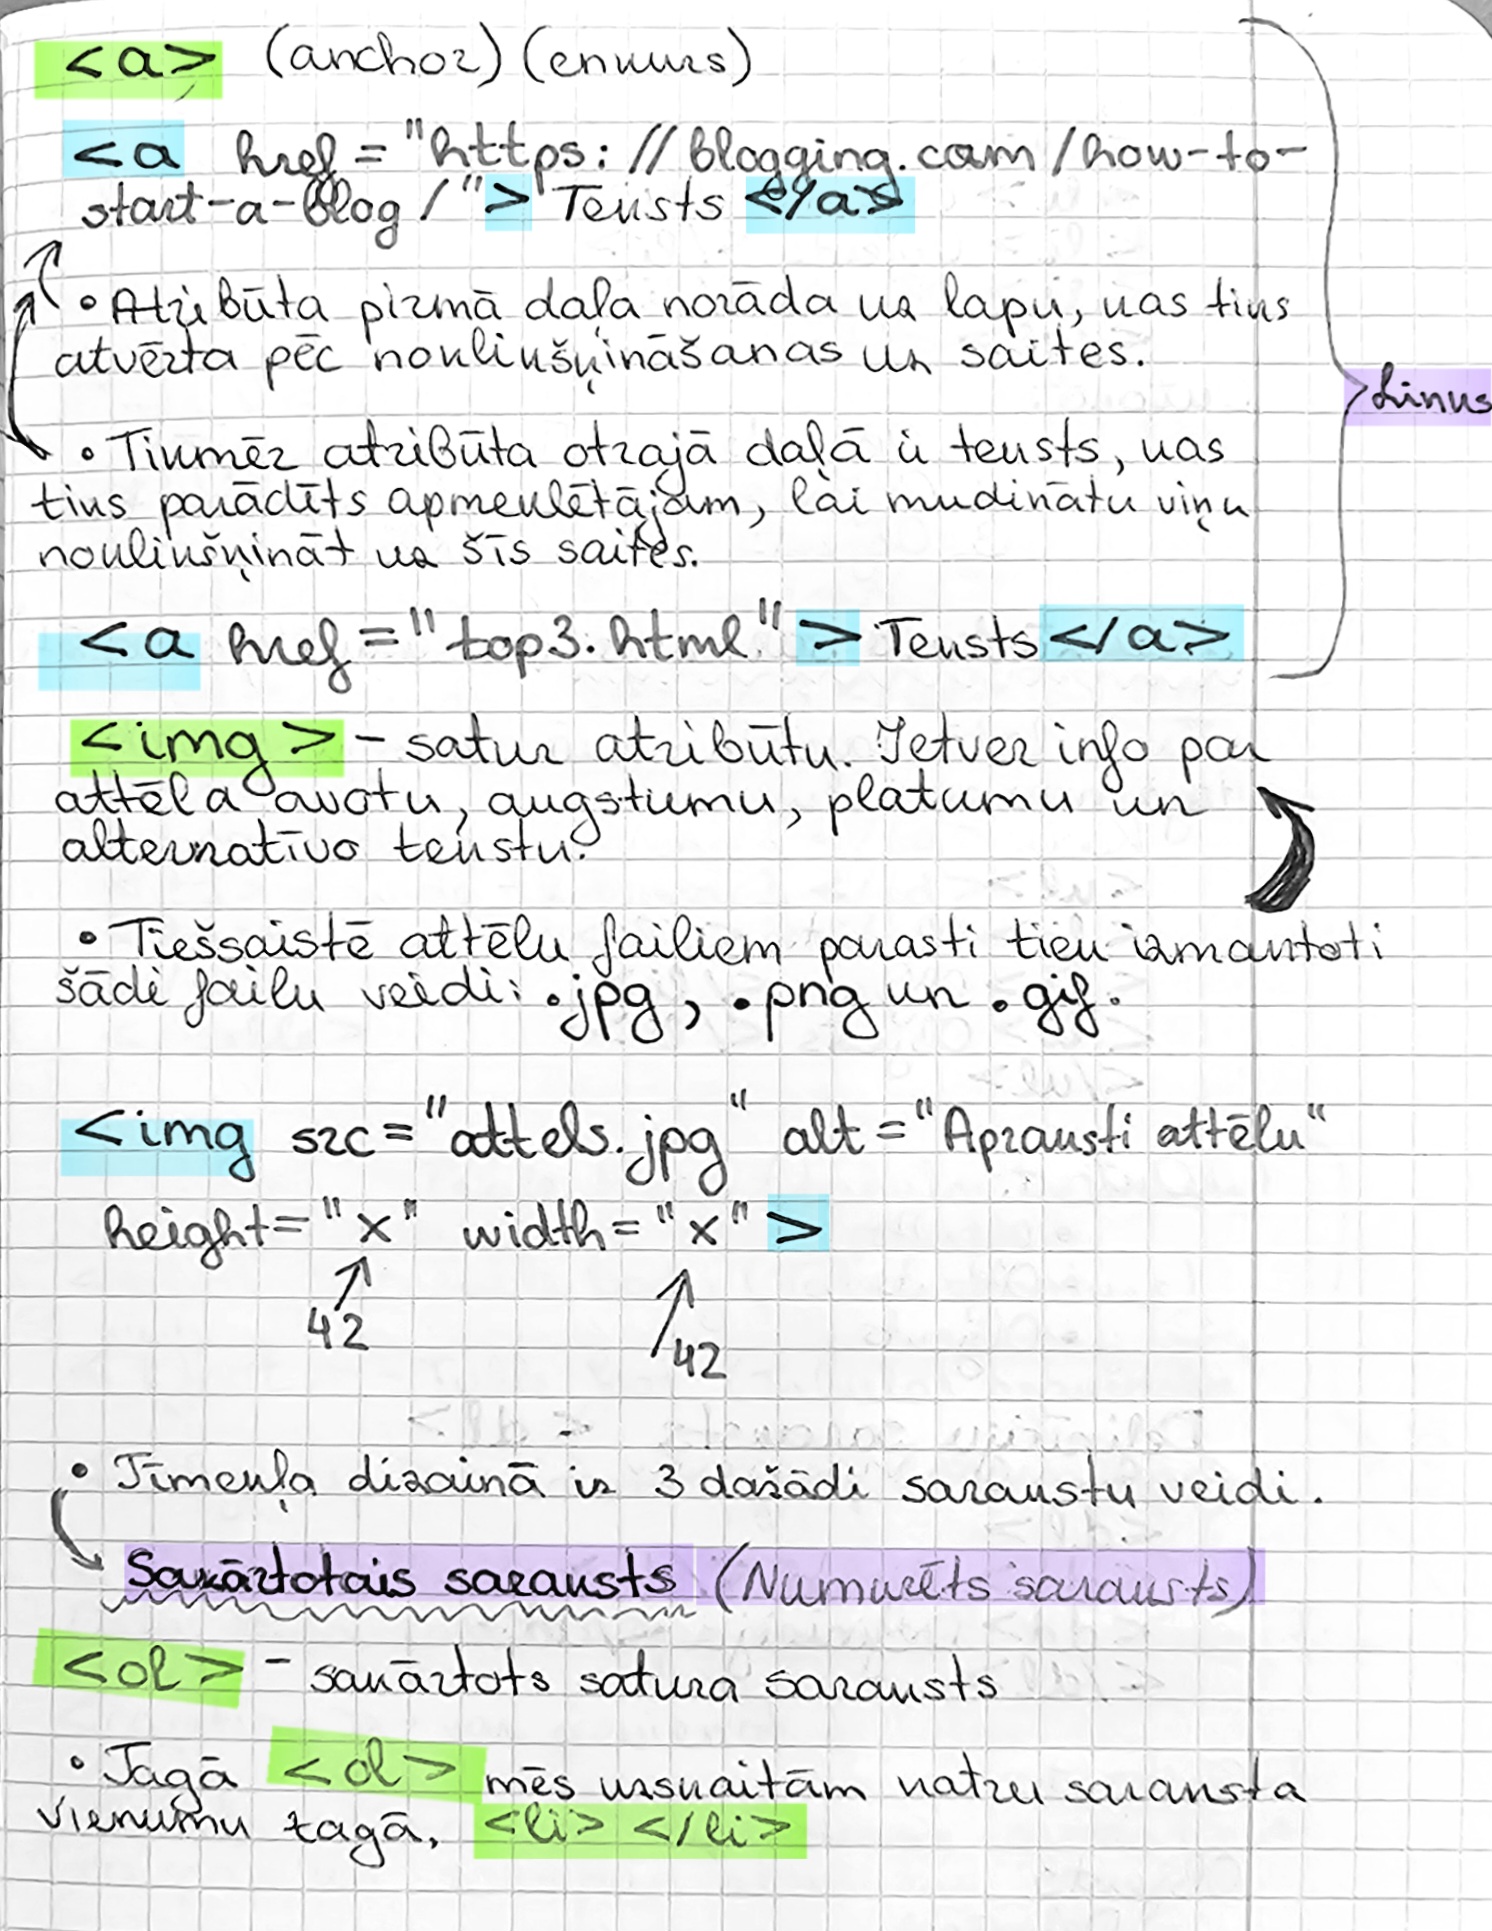 <a> (anchor) (enkurs)
<a href="https://blogging.com/how-to-
start-a-blog/"> Teksts </a>
• Atribūta pirmā daļa norāda uz lapu, kas tiks
atvērta pēc noklikšķināšanas uz saites.
Links
• Tikmēr atribūta otrajā daļā ir teksts, kas
tiks parādīts apmeklētājam, lai mudinātu viņu
noklikšķināt uz šīs saites.
<a href="top3.html"> Teksts </a>
<img> - satur atribūtu. Ietver info par
attēla avotu, augstumu, platumu un
alternatīvo tekstu.
• Tiešsaistē attēlu failiem parasti tiek izmantoti
šādi failu veidi: .jpg, .png un .gif.
<img src="attels.jpg" alt="Apraksti attēlu"
height="x" width="x">
42
42
• Tīmekļa dizainā ir 3 dažādi sarakstu veidi.
Sakārtotais saraksts (Numurēts saraksts)
<ol> - sakārtots satura saraksts
• Tagā <ol> mēs uzskaitām katru saraksta
vienumu tagā, <li> </li>